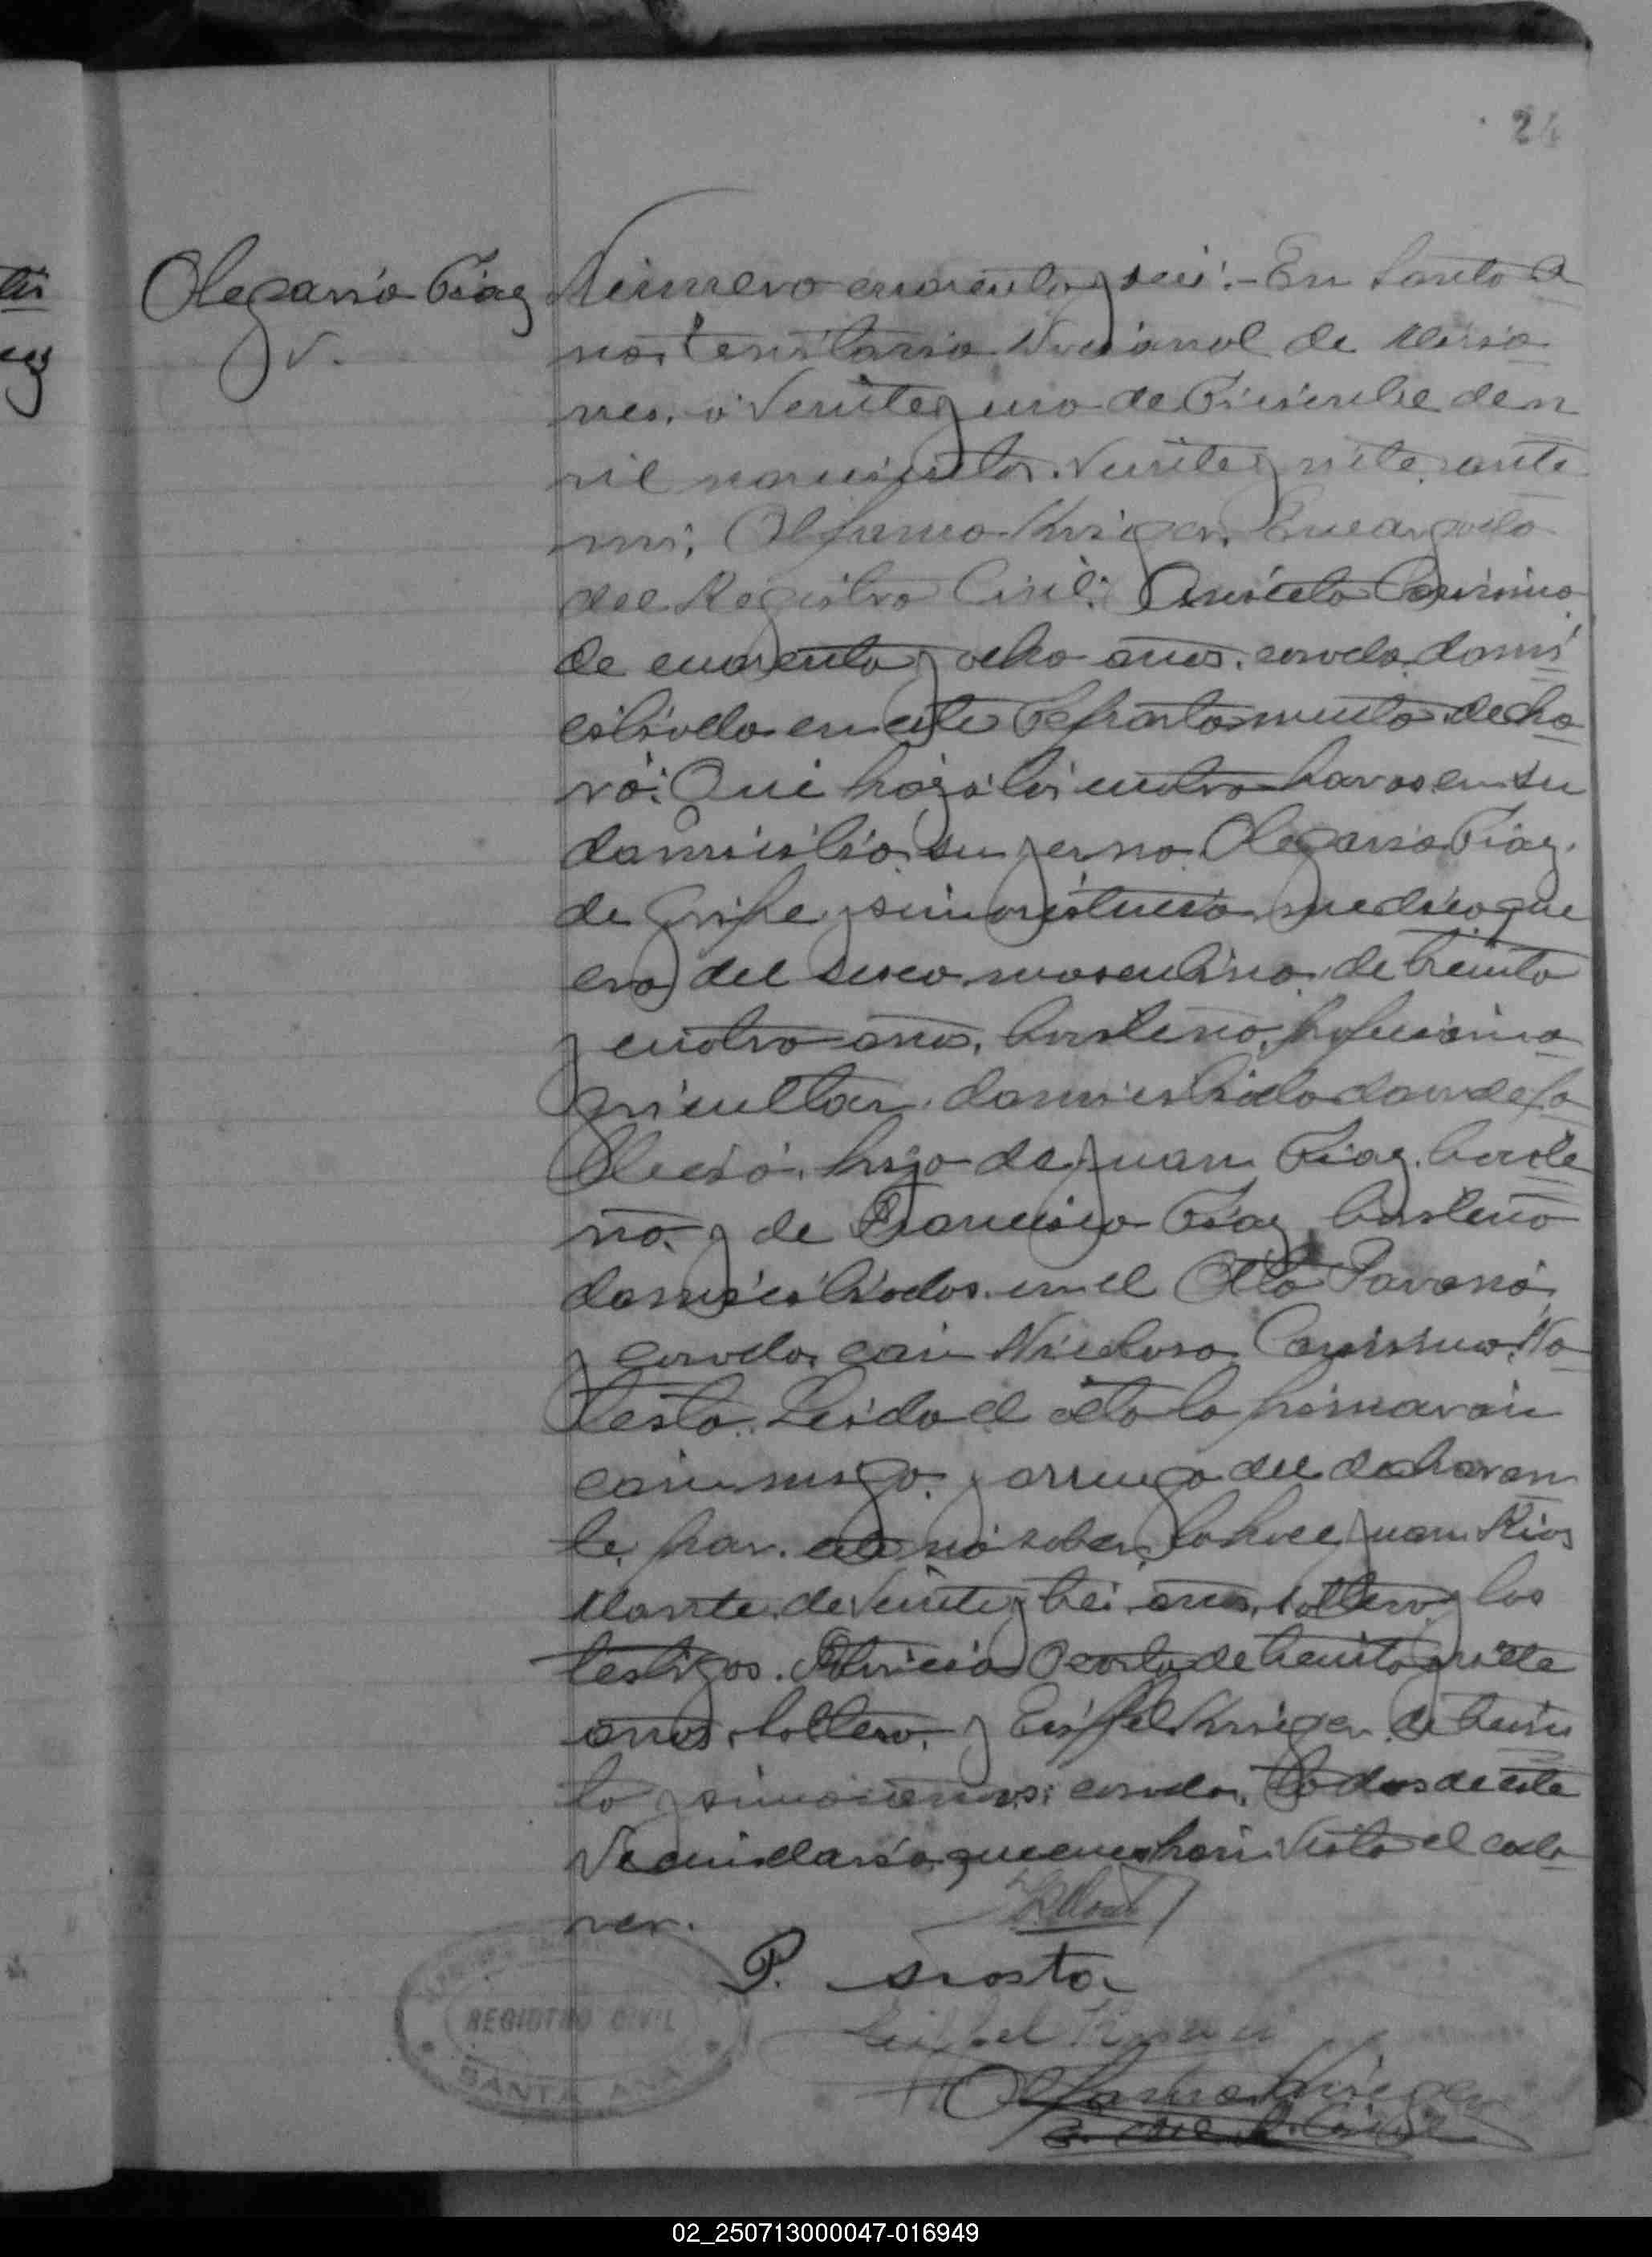 24
Olegario Diaz
V.
Número cuarenta y seis:- En Santa A
na, territorio Nacional de Misio
nes, a veinte y uno de Diciembre de m
nil novecientos veinte y siete, ante
mi, Krieger, Encargado
del Registro Civil: Aniceto
de cuarenta y ocho años, casado, domi
ciliado en este Departamento declo
ró: Que hoy a las cuatro horas en su
domicilio, su yerno Olegario Diaz,
de Gripe sin asistencia medica que
era del sexo masculino, de treinta
y cuatro años, brasleño, profesion a
gricultor, domiciliado donde fa
lleció, hijo de Juan Diaz, brasle
ño, y de Francisca Diaz brasleño
domiciliados en el Alto Paraná,
y casado con No
testo. Leido el acta la firmaron
conmigo, y a ruego del declaran
te, por no saber, lo hace Juan Rios
de veinte y tres años, soltero y los
testigos. Patricio Acosta de treinta y siete
años, soltero, y Eiffel Krieger, de trein
ta y años; casado, todos de este
Vecindario, quienes han visto el cada
ver.
P. Acosta
Eiffel Krieger
Krieger
E. del R. Civil
REGISTRO CIVIL
SANTA ANA
02_250713000047-016949